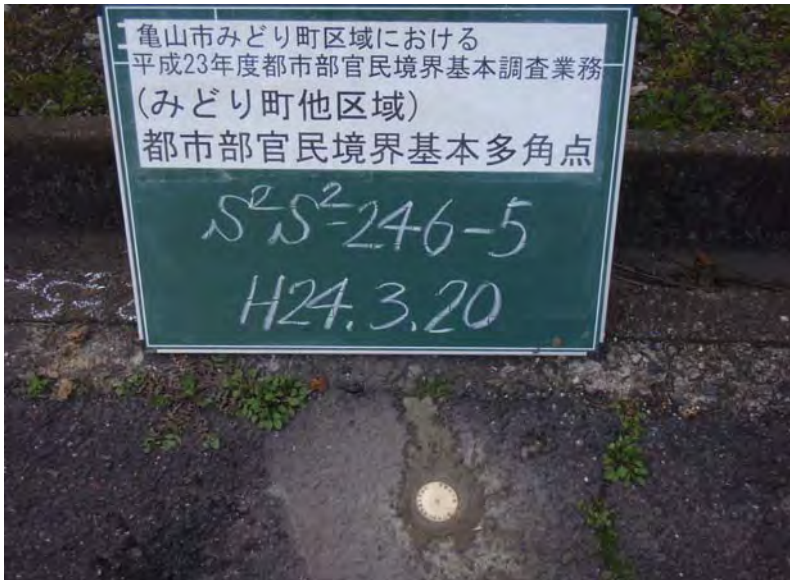 亀山市みどり町区域における
平成23年度都市部官民境界基本調査業務
(みどり町他区域)
都市部官民境界基本多角点
S²S²-246-5
H24.3.20